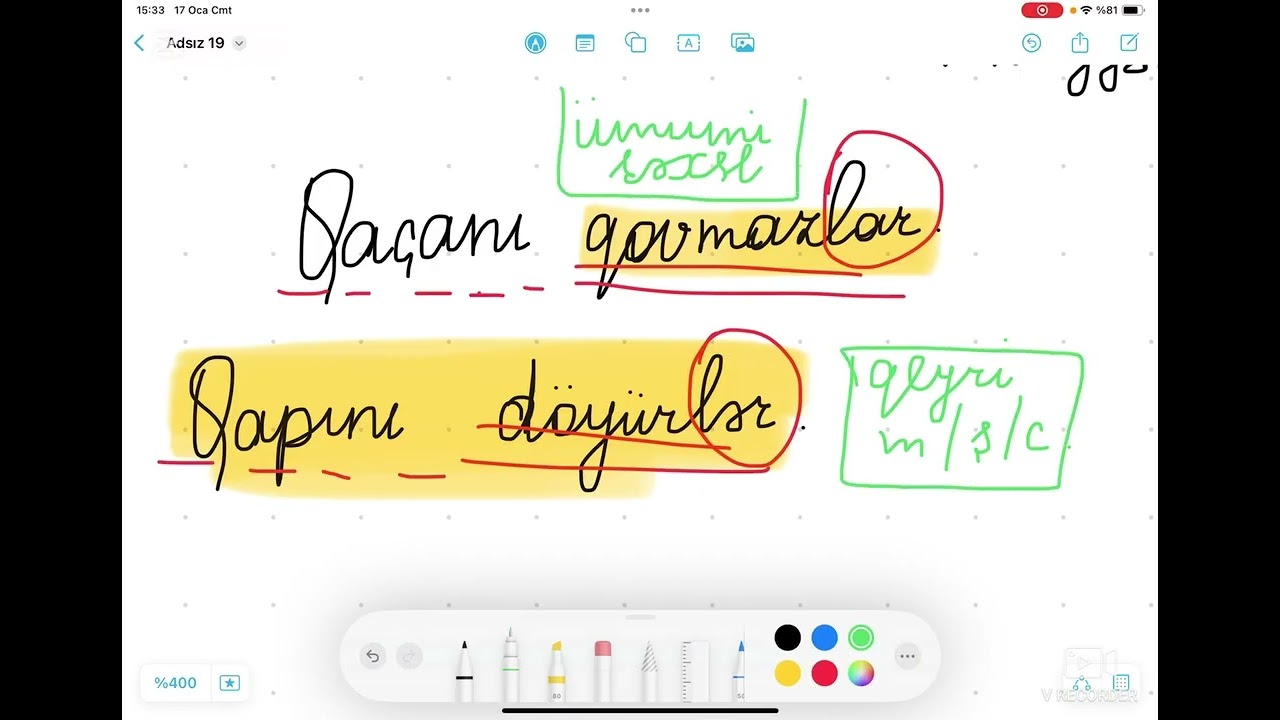 15:33 17 Oca Cmt
%81
Adsız 19
ümumi
şəxsl
Qaçanı qovmazlar.
Qapını döyürlər.
qeyri
m/ş/c
%400
80
50
V RECORDER